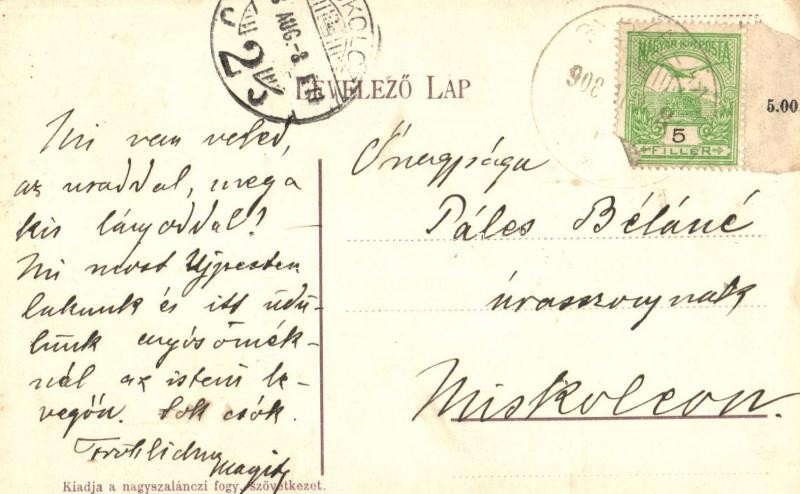 MISKOLCZ
AUG.-8.
2
LEVELEZŐ LAP
908
MAGYAR KIR. POSTA
5
FILLÉR
5.00
Mi van veled,
az uraddal, meg a
kis lányoddal! –
Mi most Újpesten
lakunk és itt üdü-
lünk anyósomék-
nál az isteni le-
vegőn. Sok csók.
Fröhlichné
Magit
Őnagysága
Páles Béláné
úrasszonynak
Miskolcon.
Kiadja a nagyszalánczi fogy. szövetkezet.